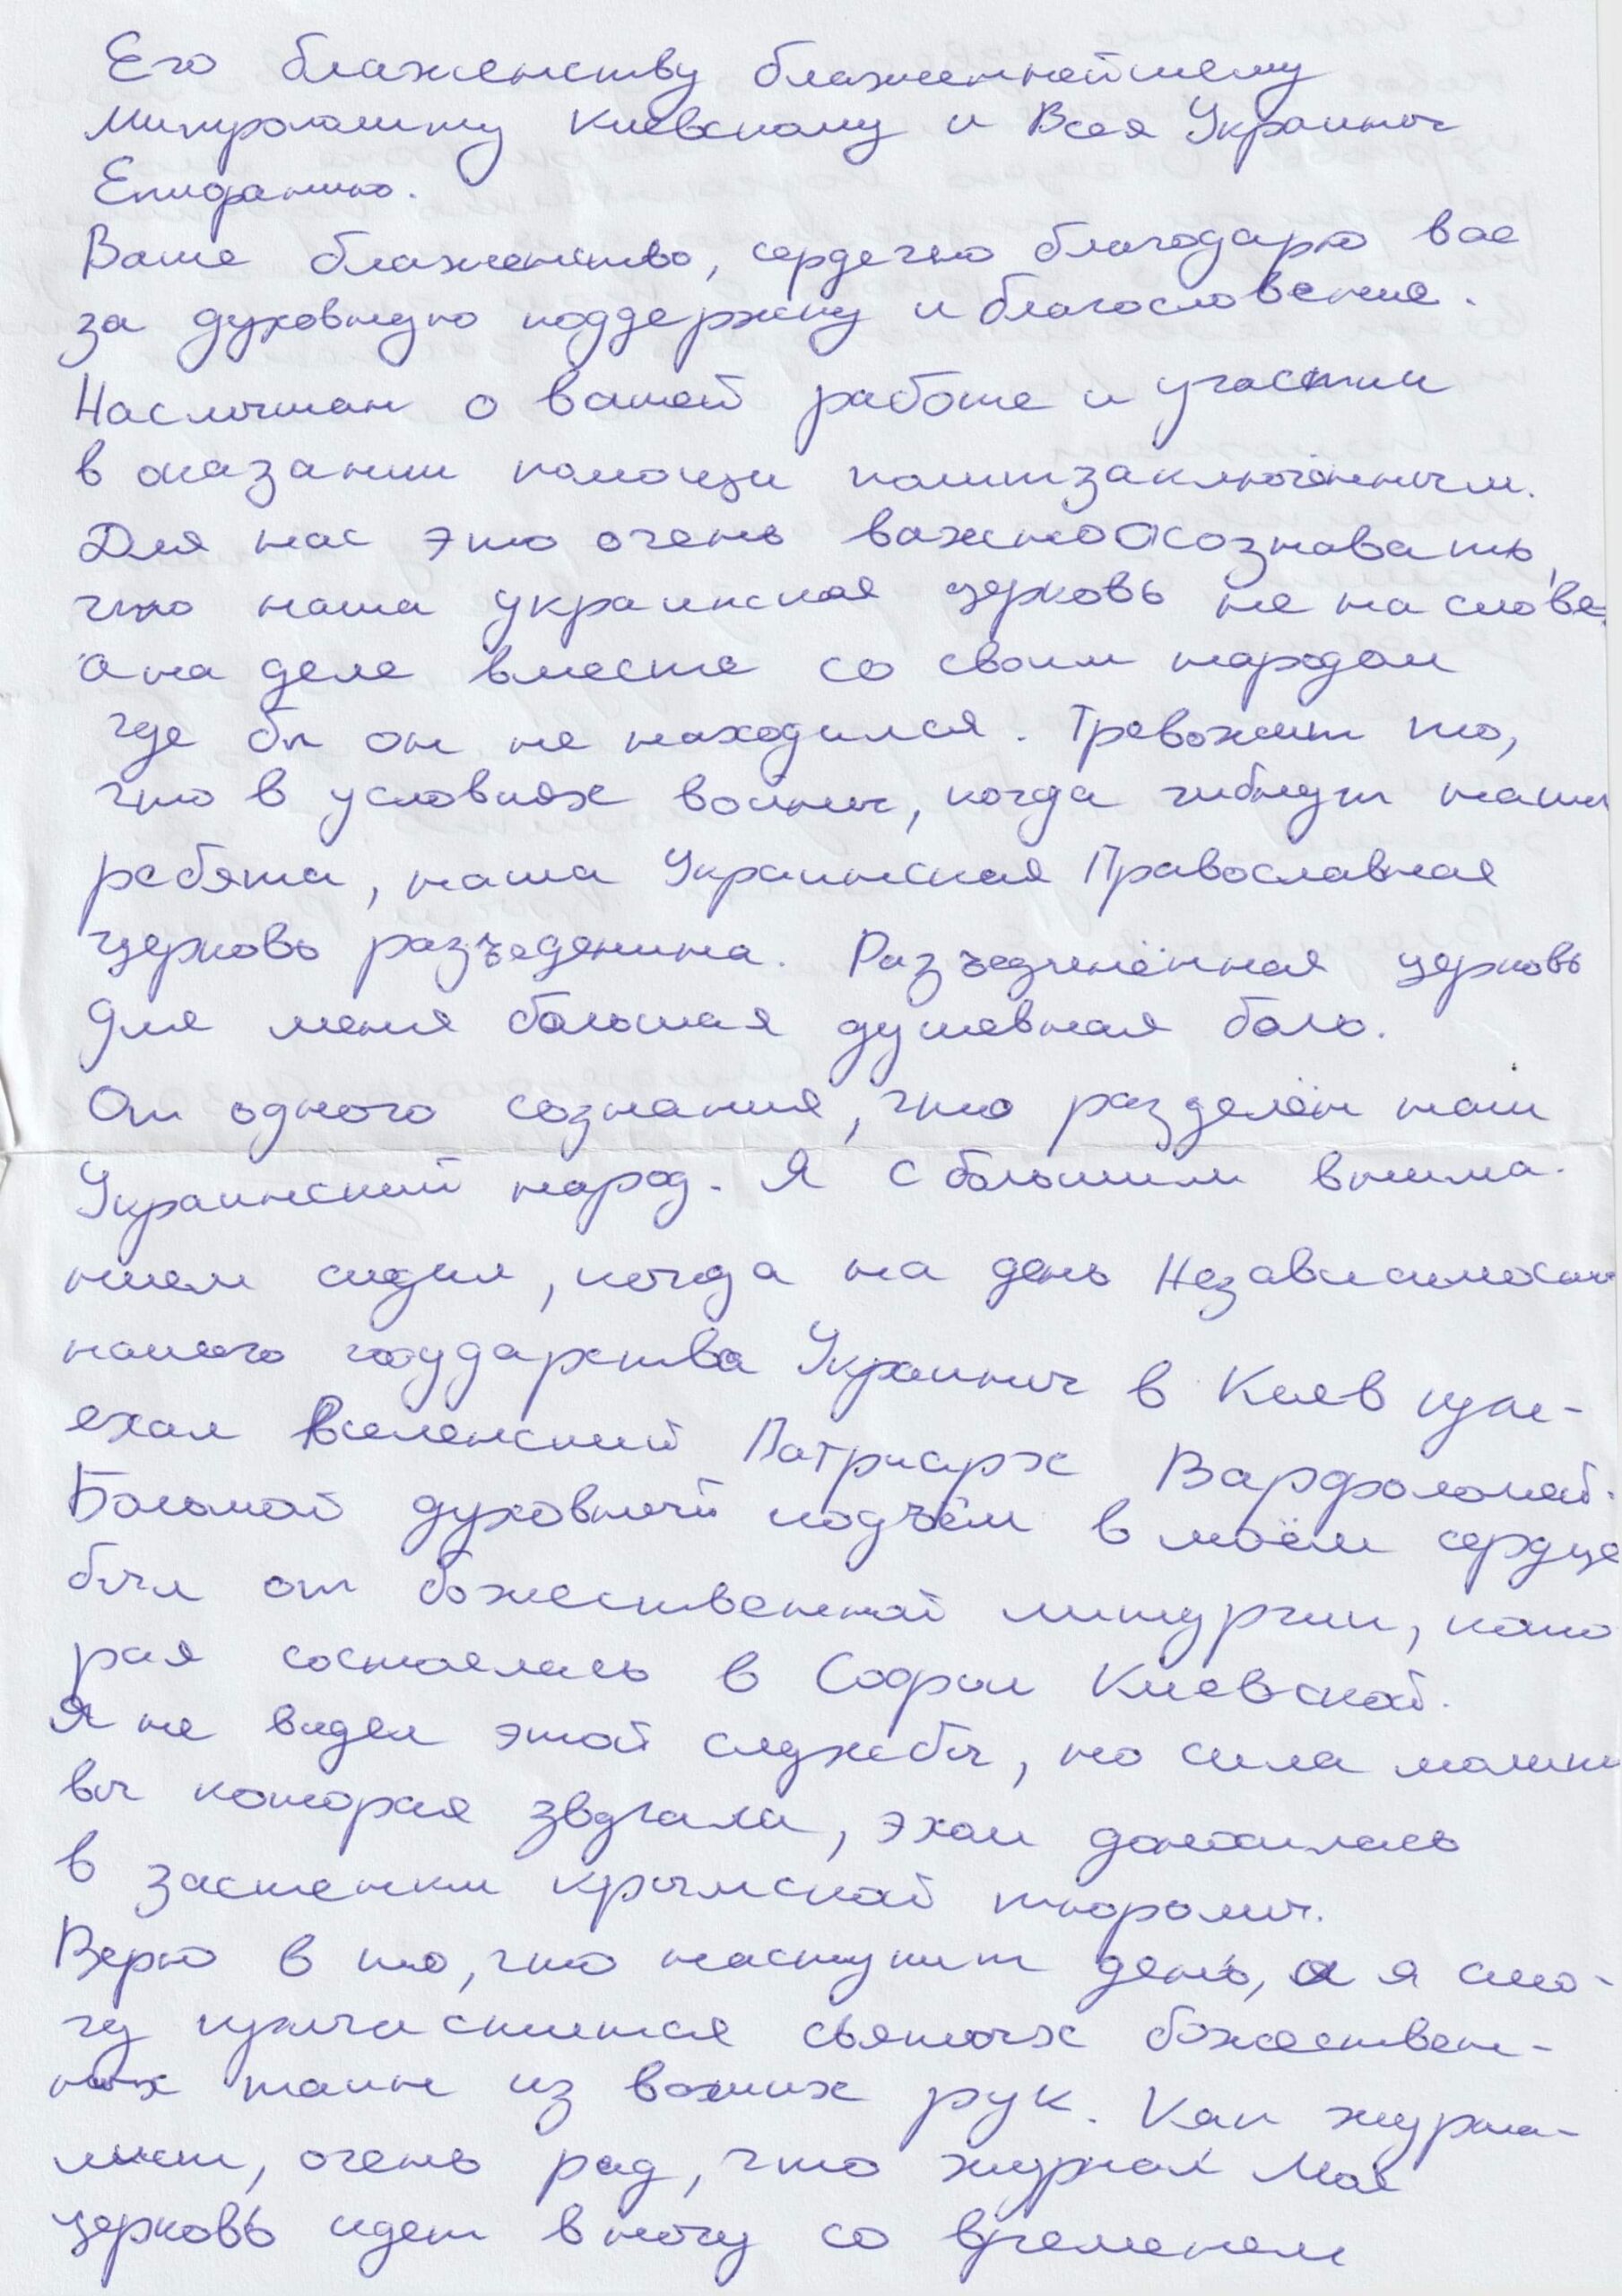 Его блаженству блаженнейшему
Митрополиту Киевскому и Всея Украины
Епифанию.
Ваше блаженство, сердечно благодарю вас
за духовную поддержку и благословение.
Наслышан о вашей работе и участии
в оказании помощи политзаключённым.
Для нас это очень важно осознавать,
что наша украинская церковь не на слове,
а на деле вместе со своим народом
где бы он не находился. Тревожит то,
что в условиях войны, когда гибнут наши
ребята, наша Украинская Православная
церковь разъеденина. Разъединённая церковь
для меня большая душевная боль.
От одного сознания, что разделён наш
Украинский народ. Я с большим внима-
нием следил, когда на день Независимости
нашего государства Украины в Киев при-
ехал Вселенский Патриарх Варфоломей.
Большой духовный подъём в моём сердце
был от божественной литургии, кото
рая состоялась в Софии Киевской.
Я не видел этой службы, но сила молит
вы которая звучала, эхом доносилась
в застенки крымской тюрьмы.
Верю в то, что наступит день, и я смо-
гу причаститься святых божествен-
ных таин из ваших рук. Как журна-
лист, очень рад, что журнал Моя
церковь идет в ногу со временем